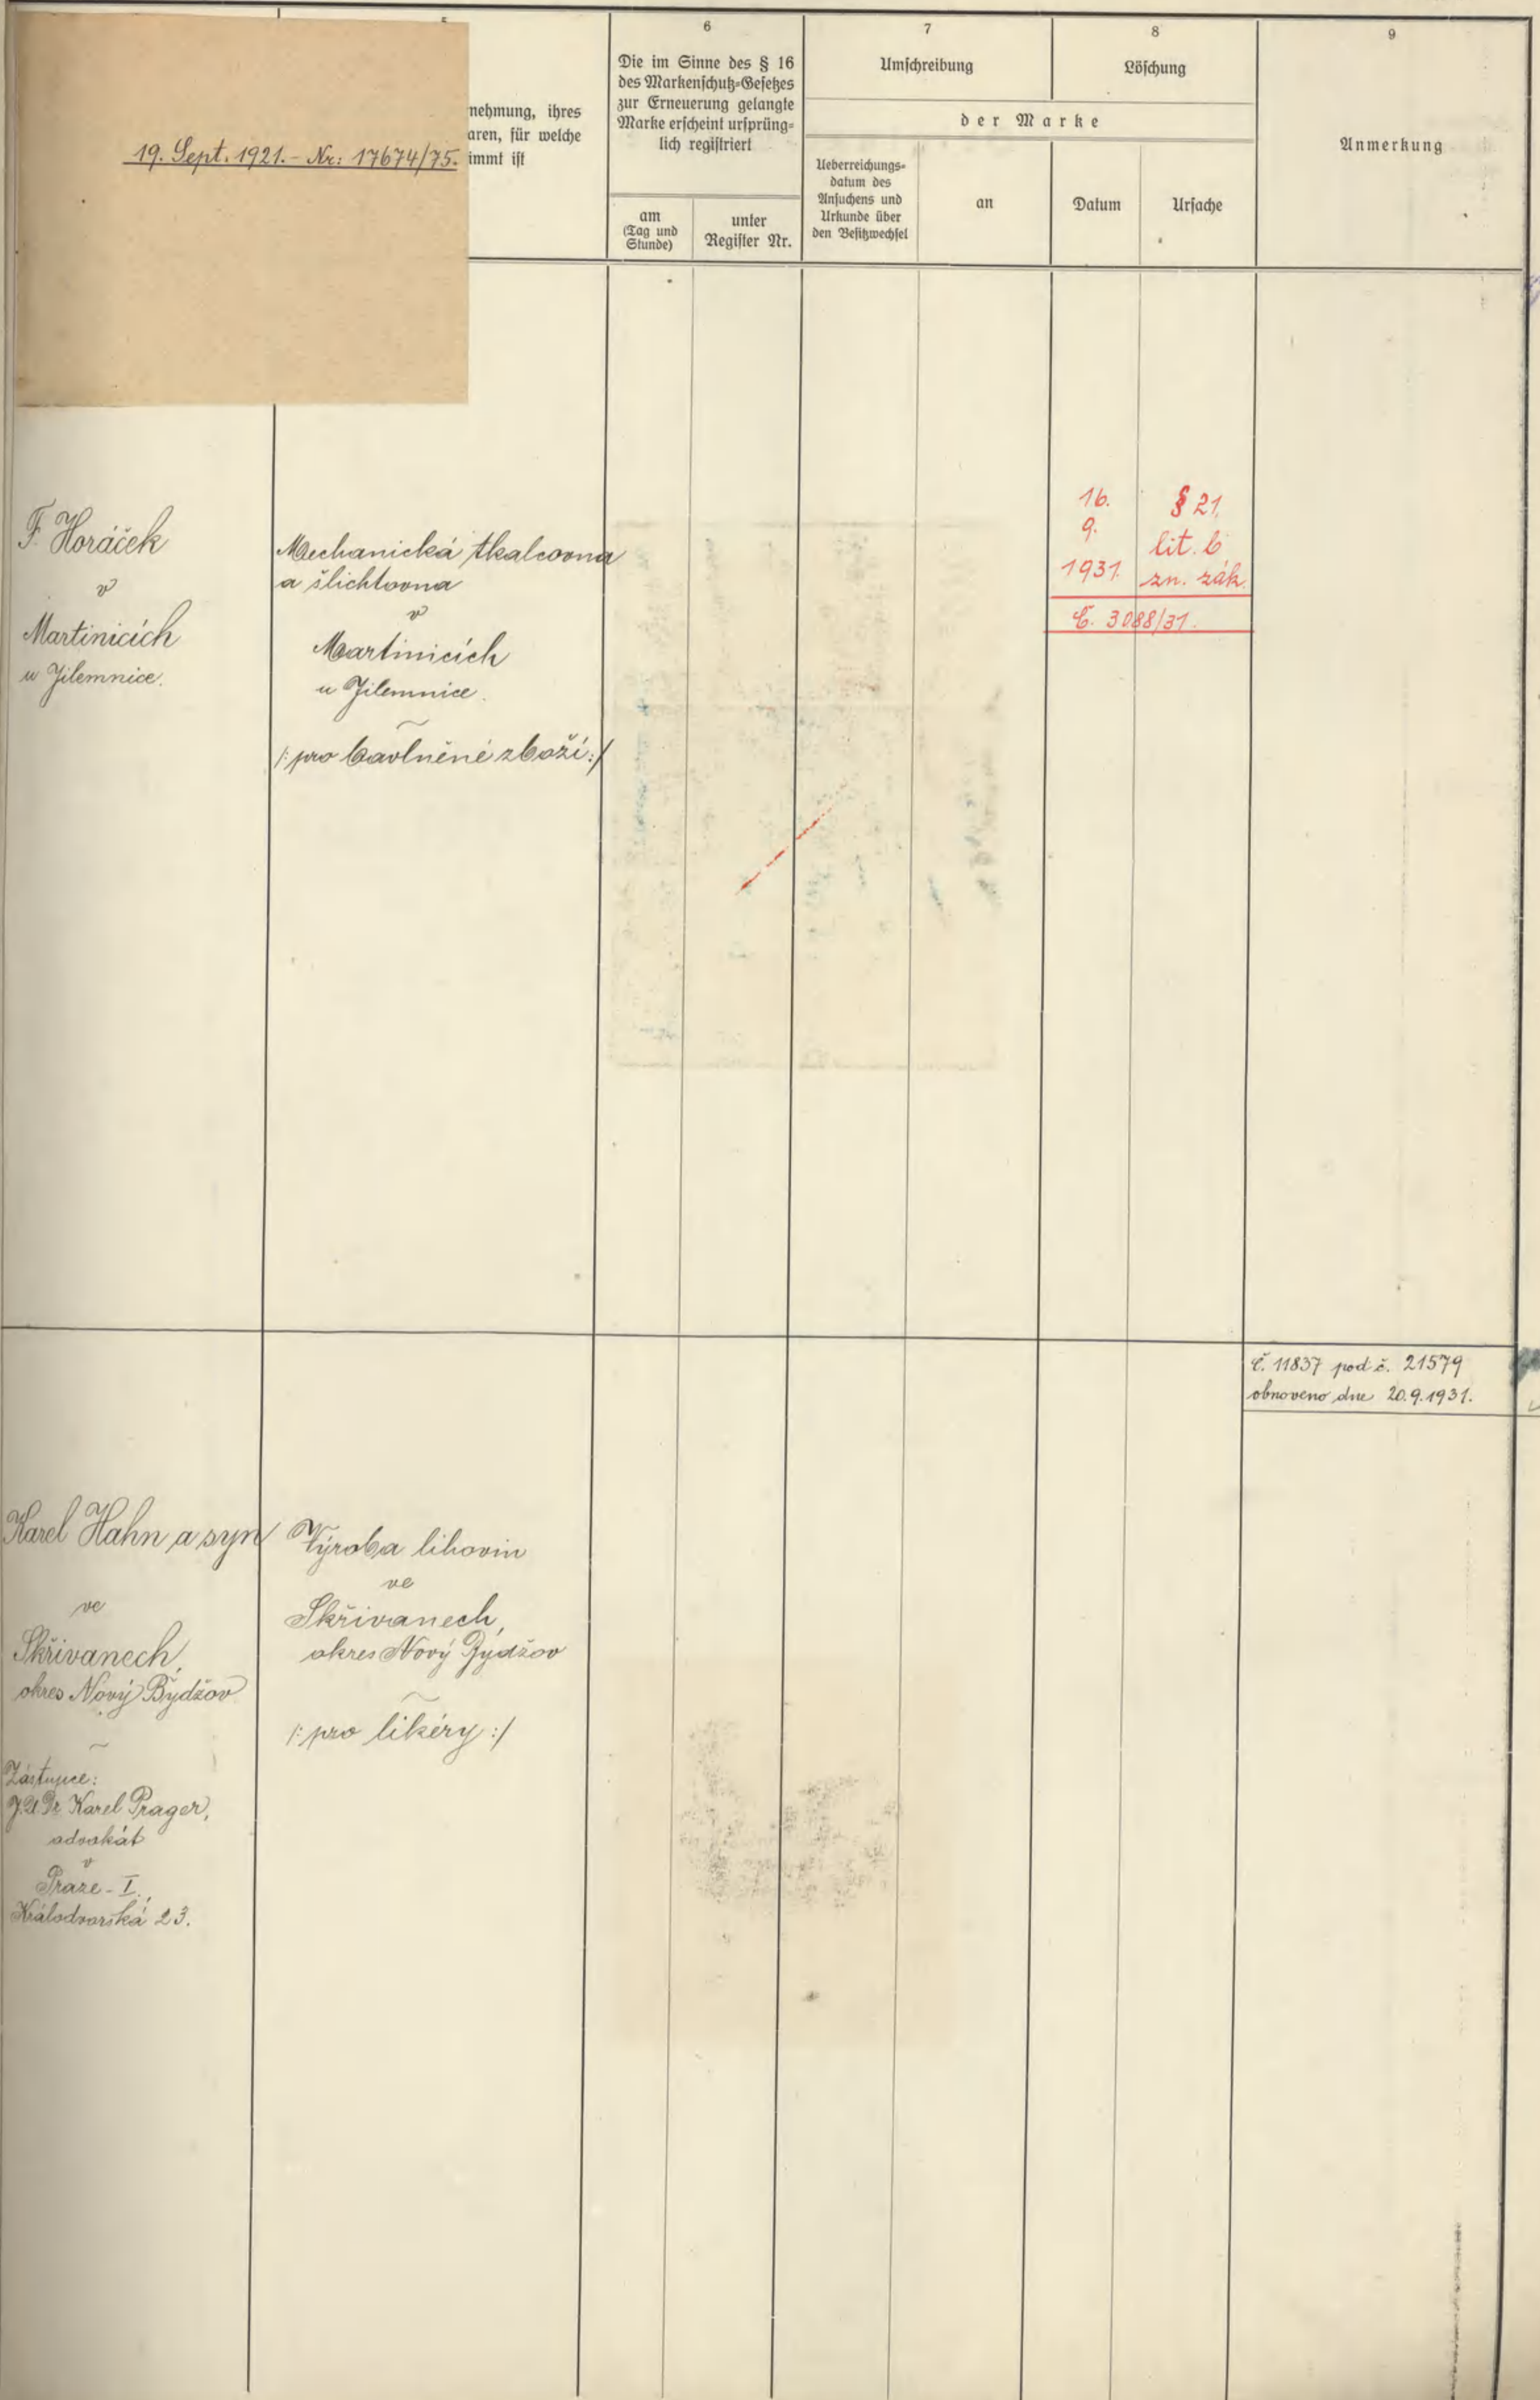 19. Sept. 1921. - Nr: 17674/75.
5
nehmung, ihres
aren, für welche
immt ist
6
Die im Sinne des § 16
des Markenschutz-Gesetzes
zur Erneuerung gelangte
Marke erscheint ursprüng-
lich registriert
am
(Tag und
Stunde)
unter
Register Nr.
7
Umschreibung
8
Löschung
der Marke
Ueberreichungs-
datum des
Ansuchens und
Urkunde über
den Besitzwechsel
an
Datum
Ursache
9
Anmerkung
F. Horáček
v
Martinicích
u Jilemnice.
Mechanická tkalcovna
a šlichtovna
v
Martinicích
u Jilemnice.
/: pro bavlněné zboží :/
16.
9.
1931.
§ 21.
lit. b
zn. zák.
Č. 3088/31.
č. 11837 pod č. 21579
obnoveno dne 20.9.1931.
Karel Hahn a syn
ve
Skřivanech,
okres Nový Bydžov
Zástupce:
J.U.Dr Karel Prager,
advokát
v
Praze - I.,
Králodvorská 23.
Výroba lihovin
ve
Skřivanech,
okres Nový Bydžov
/: pro likéry :/